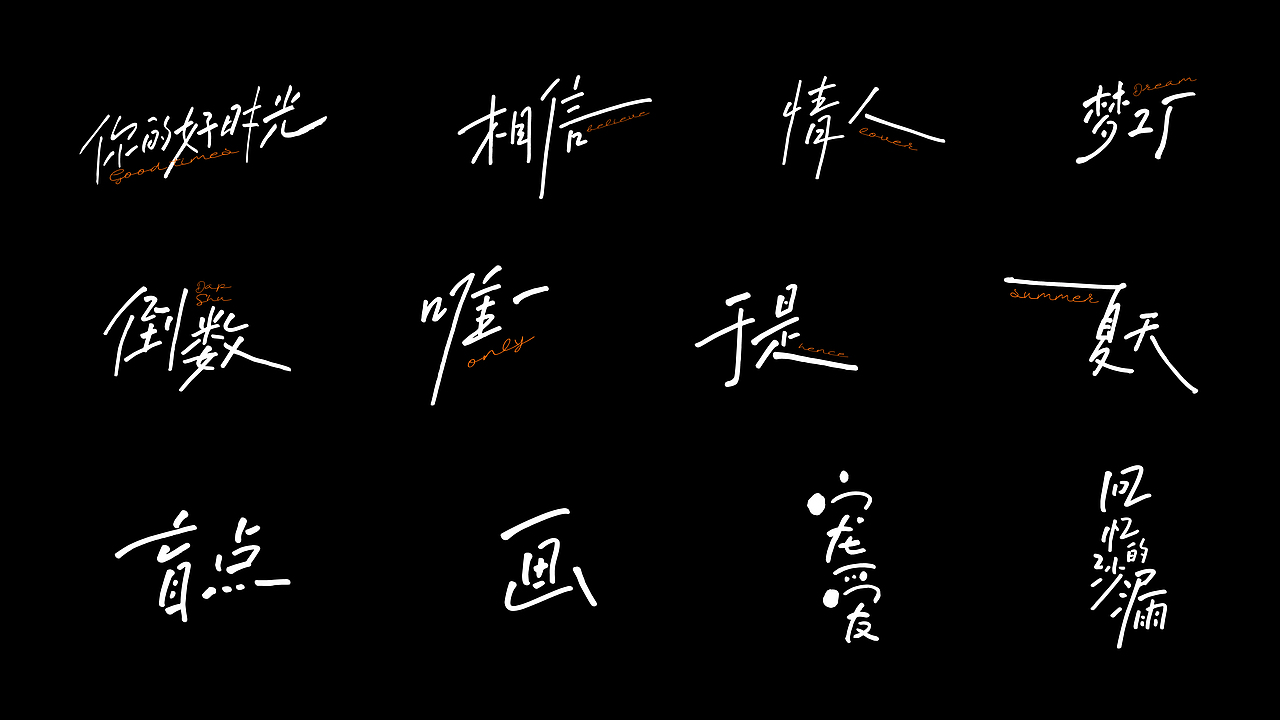 你的好时光
Good times
相信
believe
情人
lover
梦工厂
Dream
倒数
Dao
Shu
唯一
only
于是
hence
夏天
summer
盲点
画
宠爱
回忆的沙漏